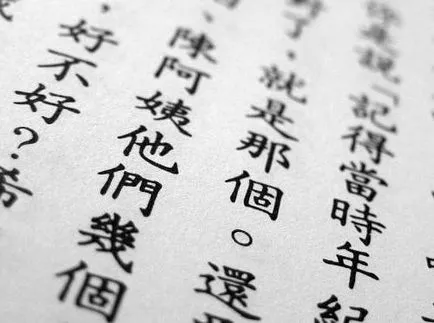 是說「記得當時年紀
了，就是那個。還
、陳阿姨他們幾個
，好不好？希